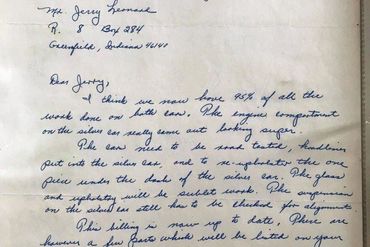 Mr. Jerry Leonard
R. 8 Box 284
Greenfield, Indiana 46140
Dear Jerry,
I think we now have 95% of all the
work done on both cars. The engine compartment
on the silver car really came out looking super.
The cars need to be road tested, headliner
put into the silver car, and to re-upholster the one
piece under the dash of the silver car. The glass
and upholstery will be sublet work. The suspension
on the silver car still has to be checked for alignment.
This billing is now up to date, There are
however a few parts which will be listed on your